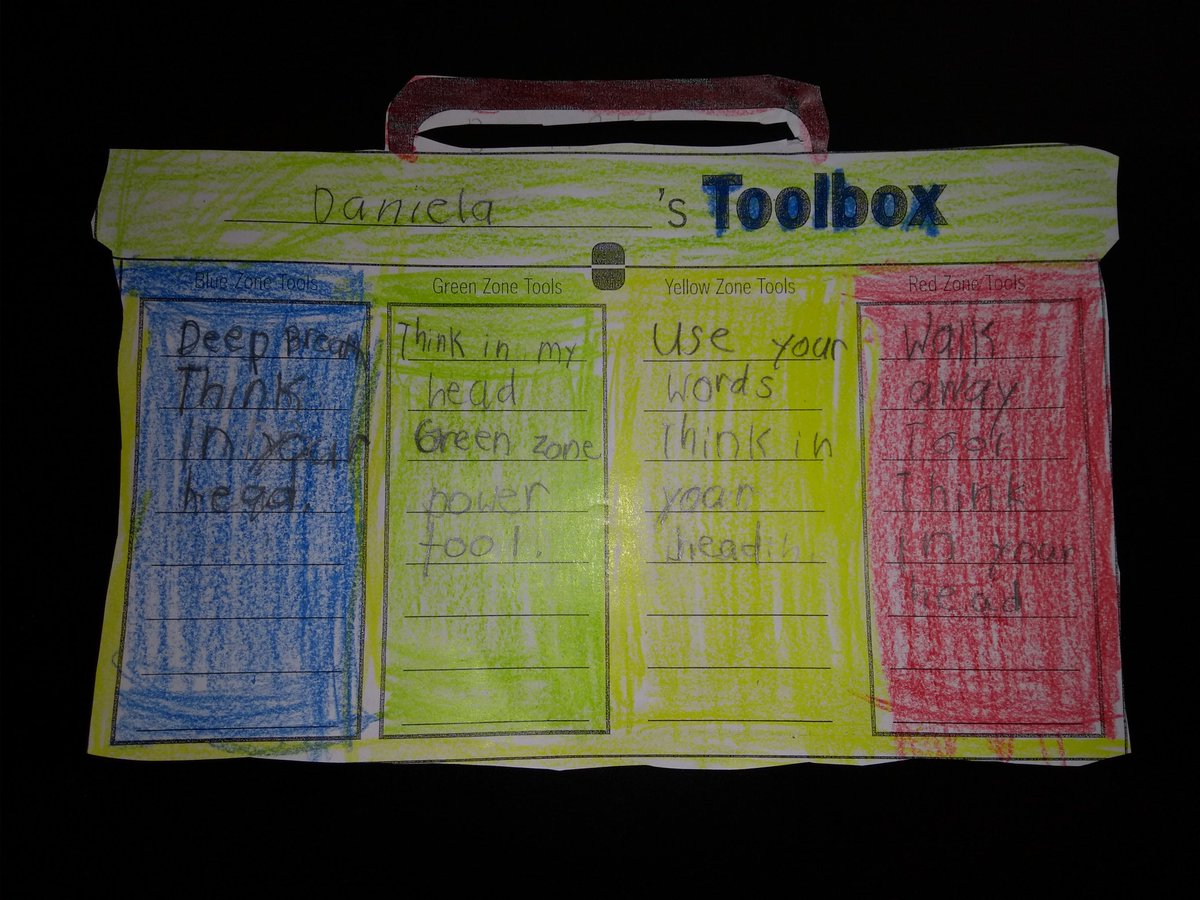 Daniela 's Toolbox
Blue Zone Tools
Deep Breath
Think
in your
head.
Green Zone Tools
Think in my
head
Green zone
power
tool.
Yellow Zone Tools
Use your
words
Think in
your
head
Red Zone Tools
Walk
away
Tool
Think
in your
head